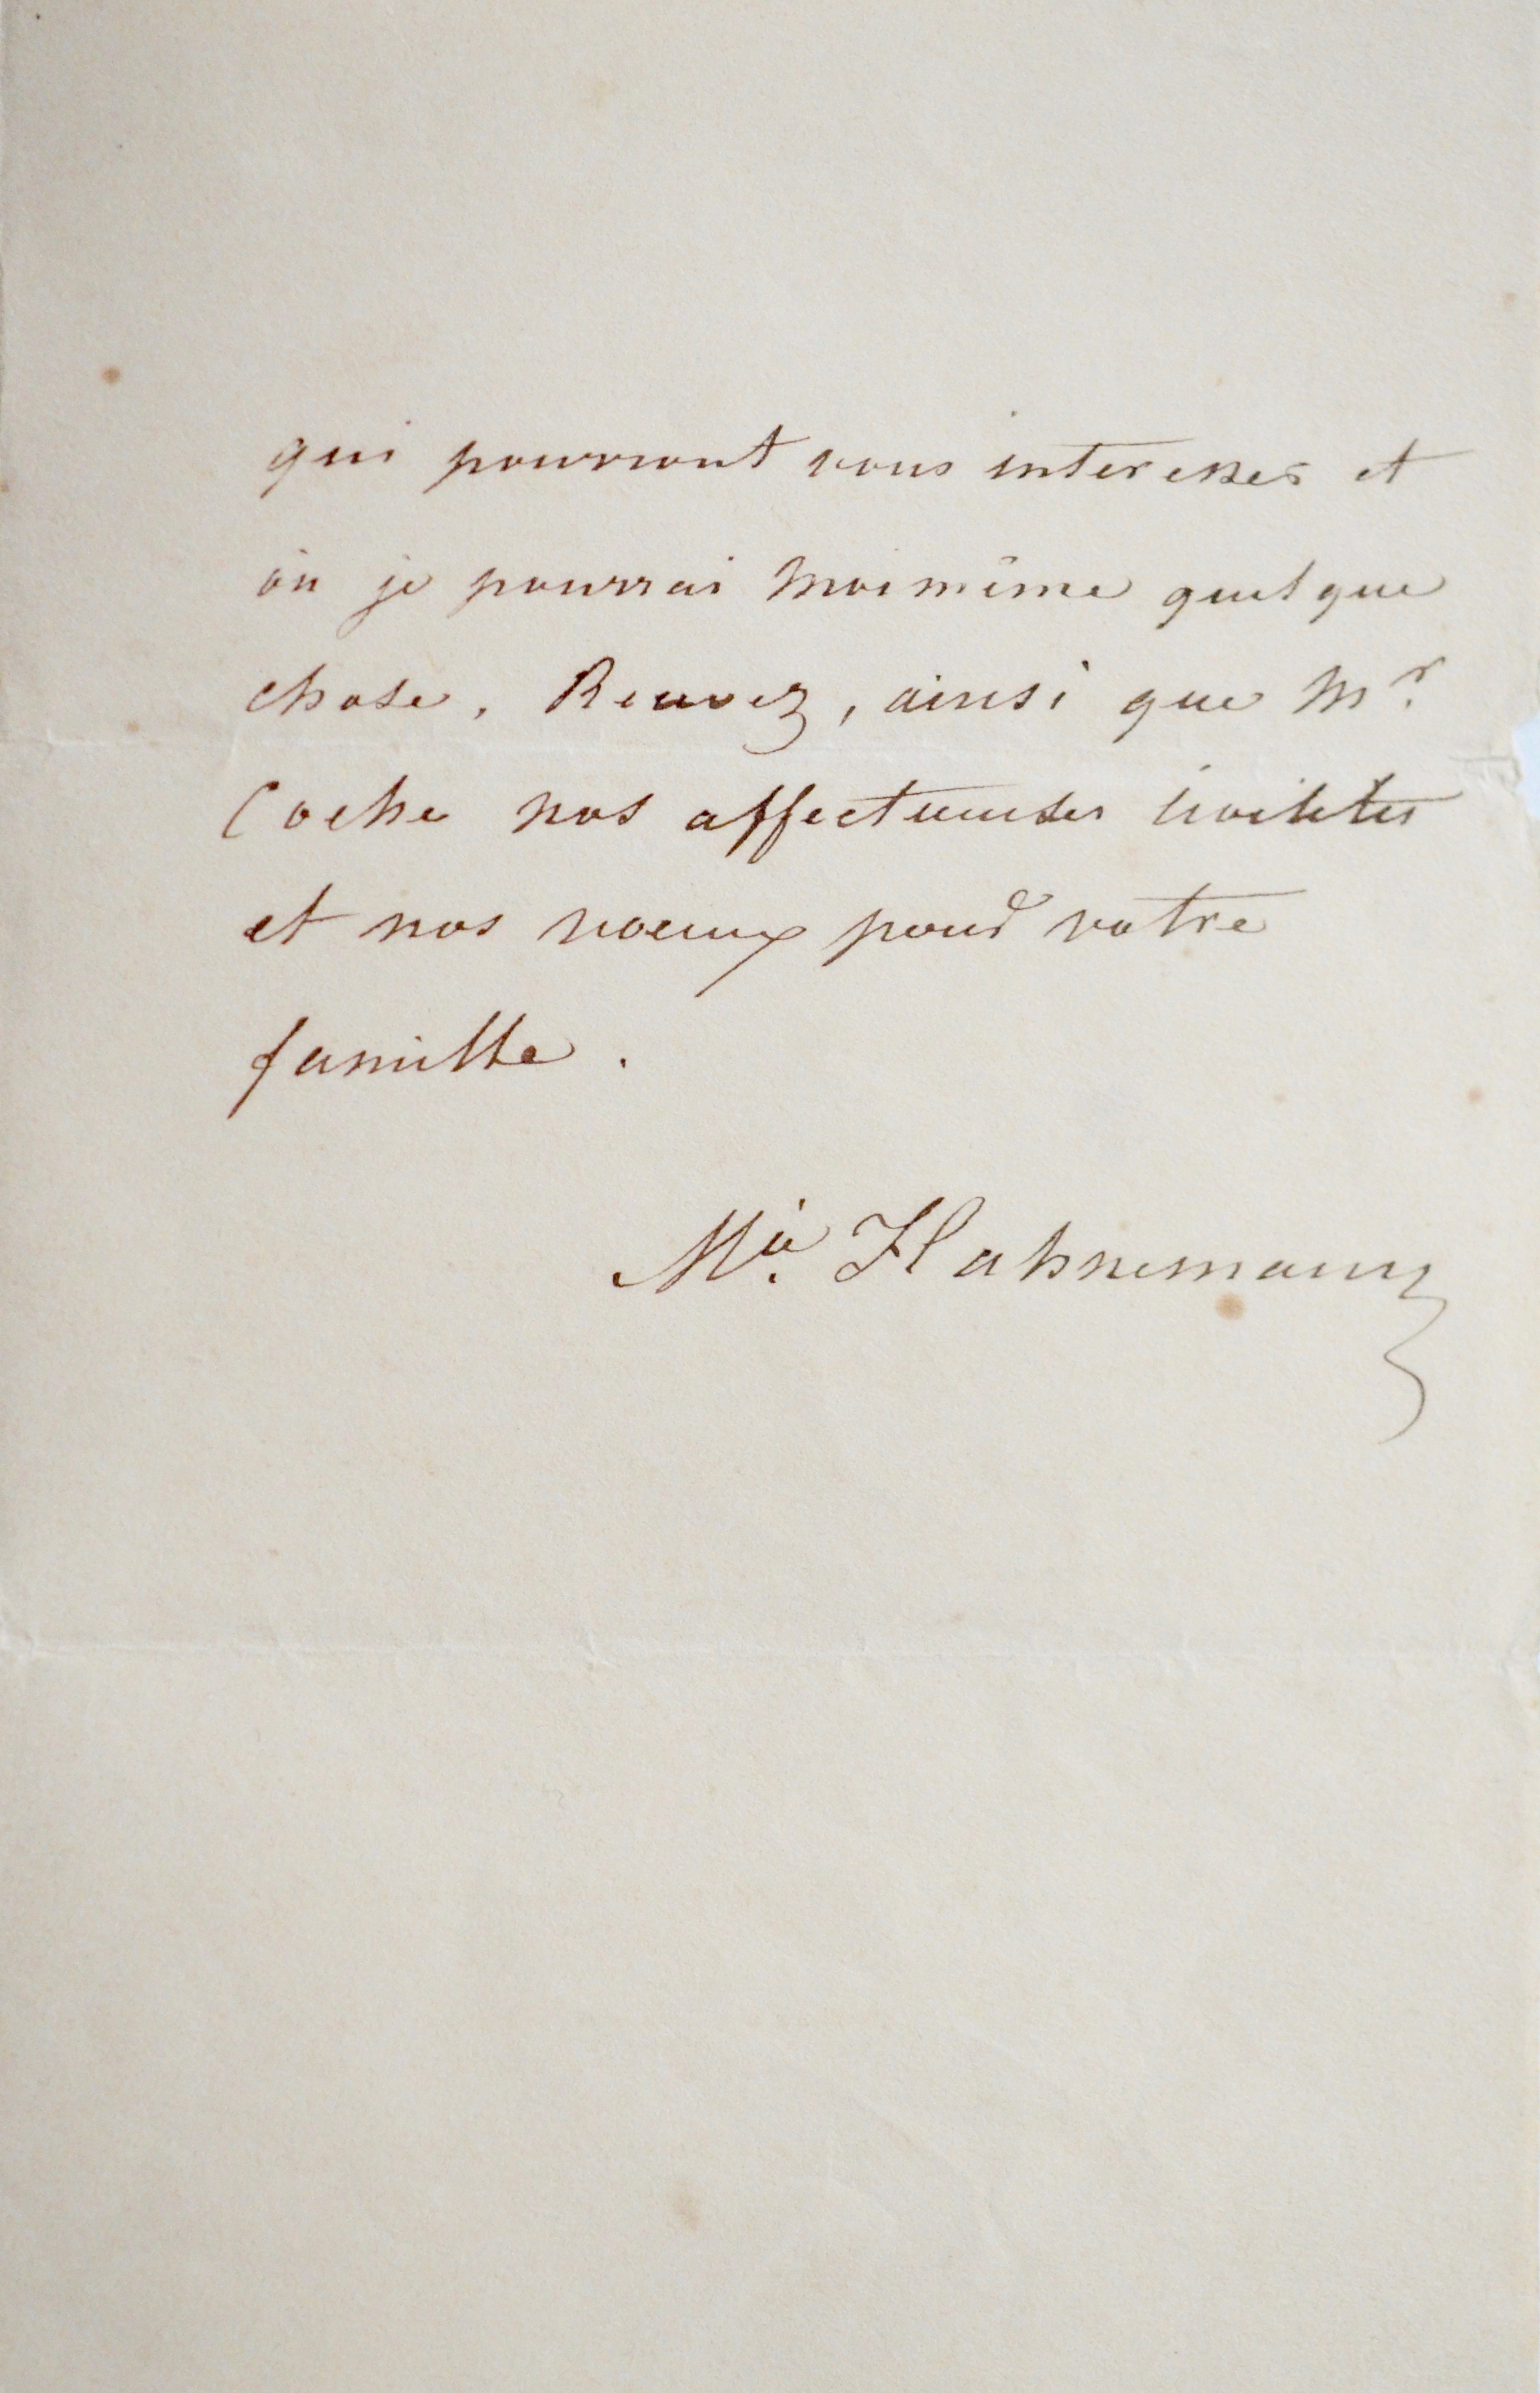 qui pourront vous interesser et
où je pourrai moi même quelque
chose. Recevez, ainsi que Mr.
Coche nos affectueuses civilités
et nos voeux pour votre
famille.
Mie. Hahnemann